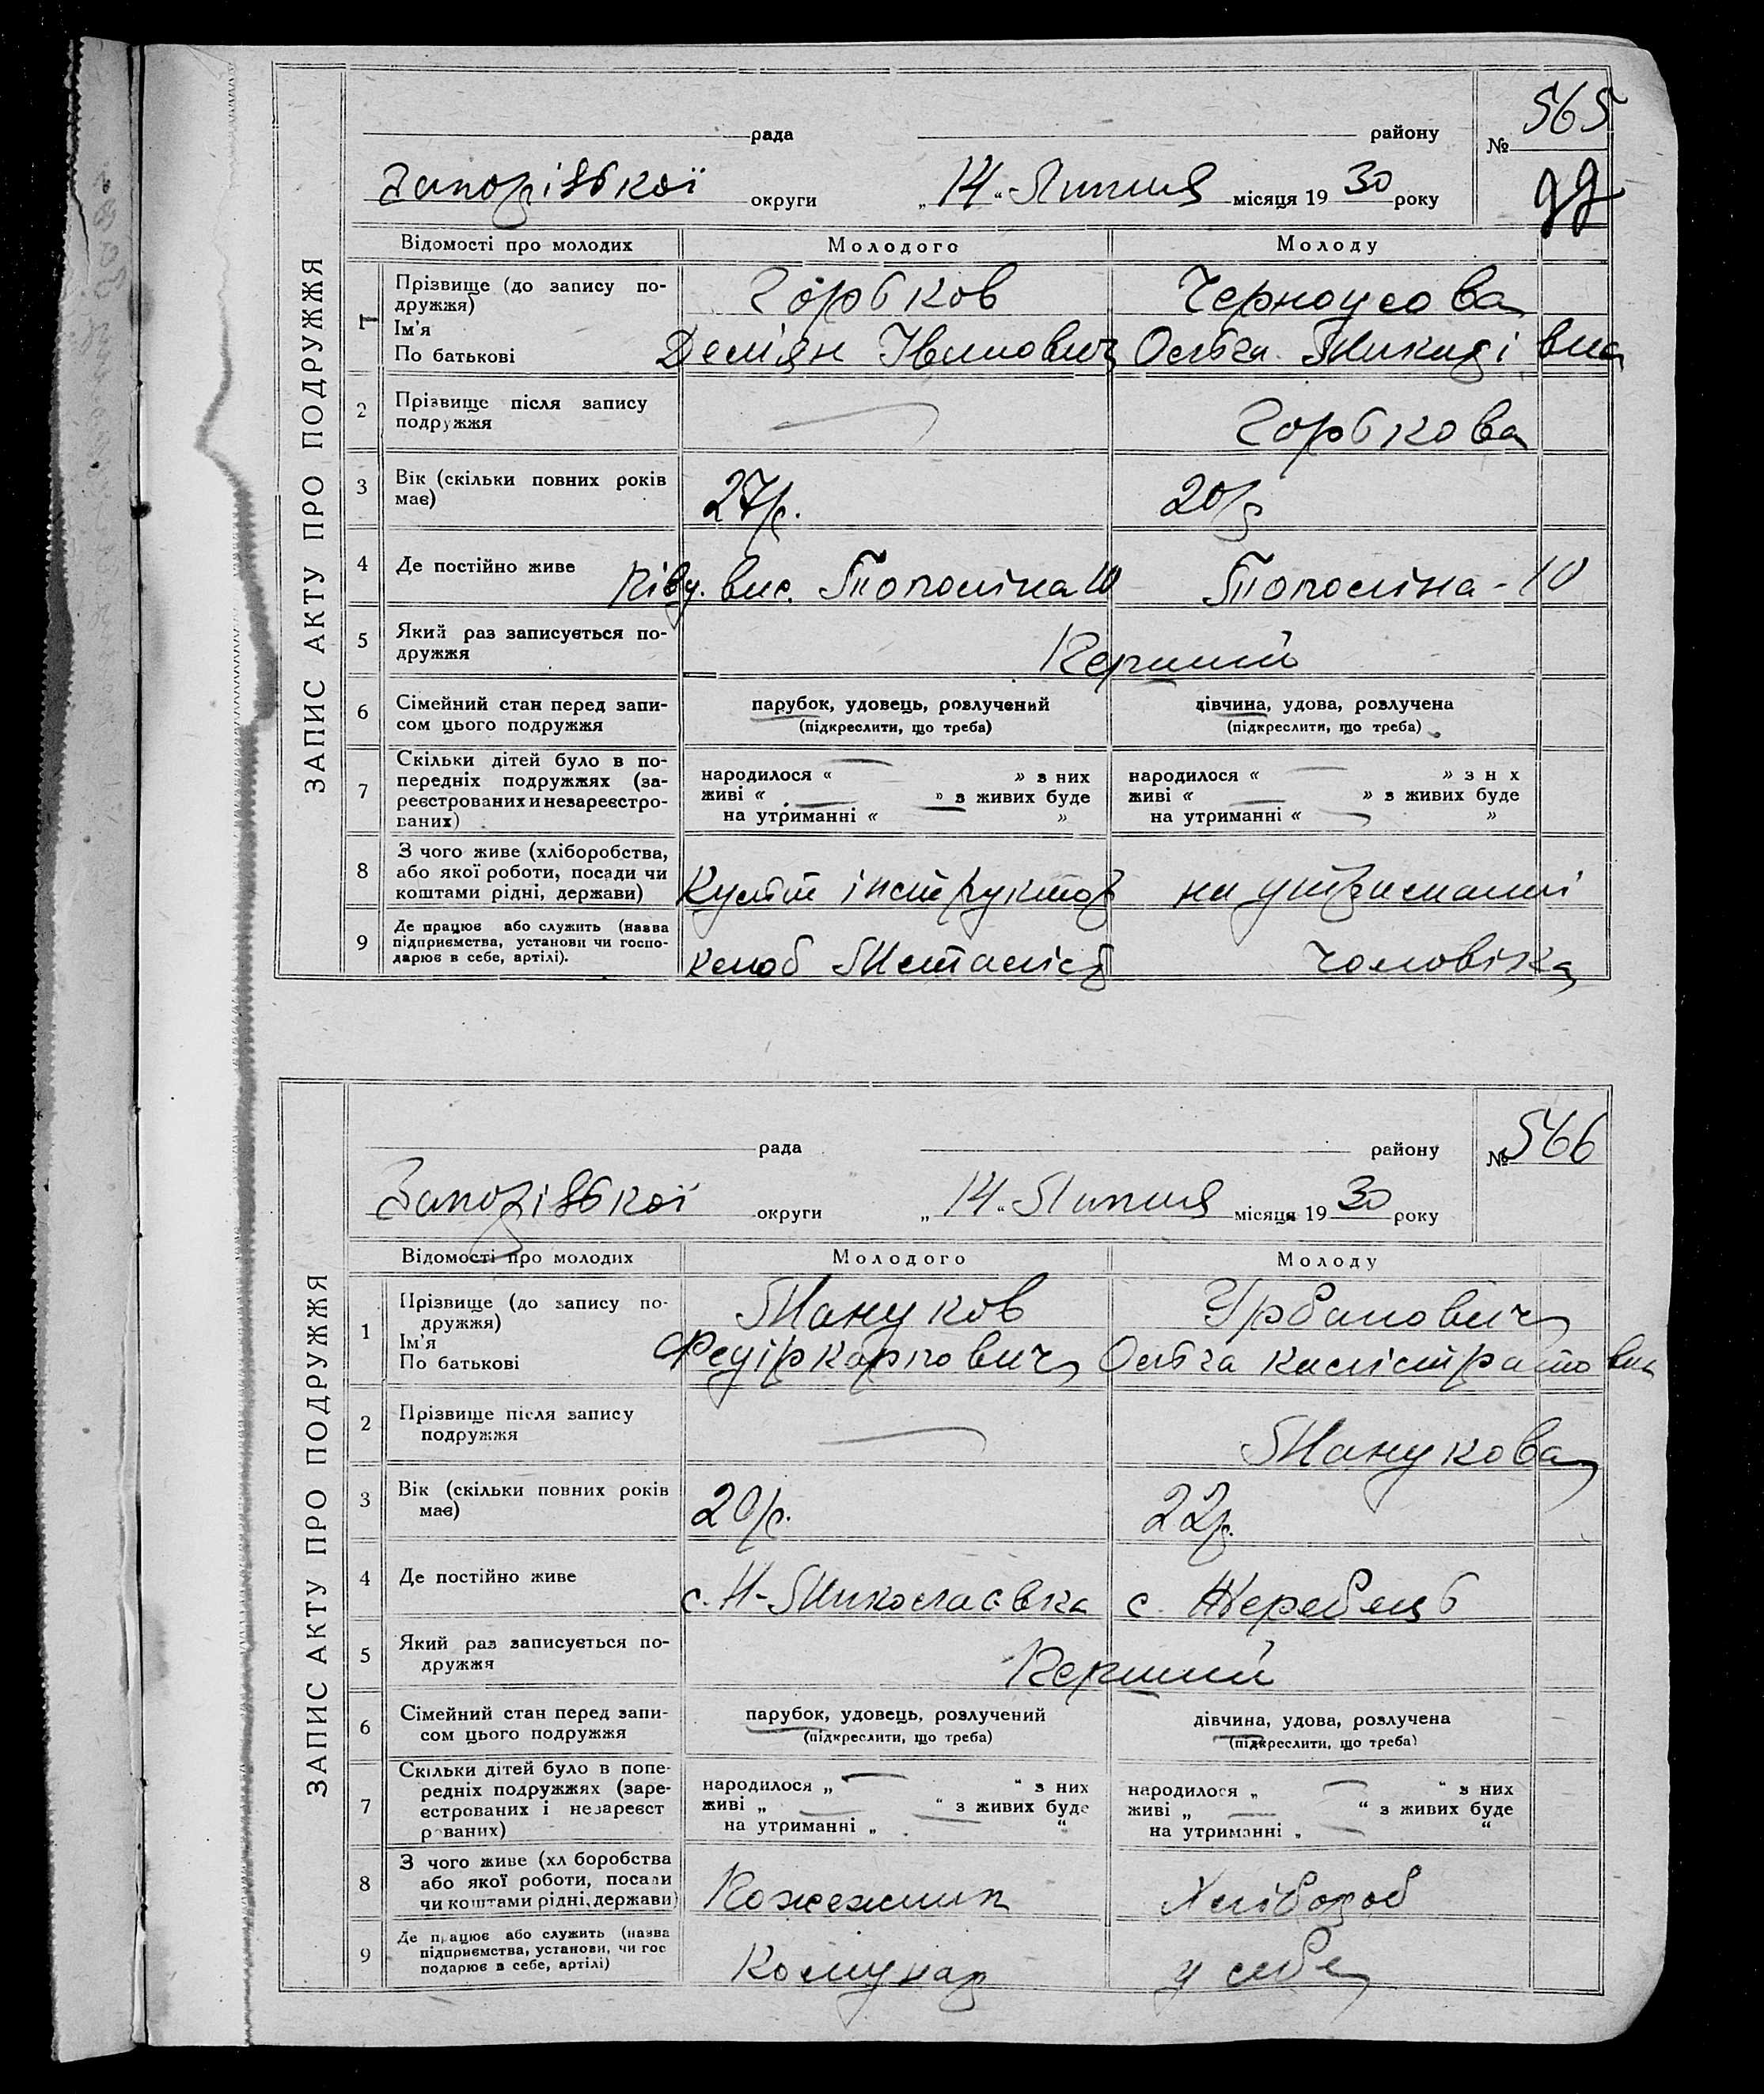 ЗАПИС АКТУ ПРО ПОДРУЖЖЯ
565
рада району №
Запорізької округи „14“ Липня місяця 1930 року
99
Відомості про молодих Молодого Молоду
1 Прізвище (до запису по- Горбков Черноусова
дружжя)
Ім'я
По батькові Дем'ян Іванович Ольга Микитівна
2 Прізвище після запису
подружжя Горбкова
3 Вік (скільки повних років
має) 27р. 20р
4 Де постійно живе Півд. вис. Тополіна 10 Тополіна-10
5 Який раз записується по-
дружжя Перший
6 Сімейний стан перед запи- парубок, удовець, розлучений дівчина, удова, розлучена
сом цього подружжя (підкреслити, що треба) (підкреслити, що треба)
7 Скільки дітей було в по-
передніх подружжях (за- народилося « » з них народилося « » з н х
реєстрованих и незареєстро- живі « » з живих буде живі « » з живих буде
ваних) на утриманні « » на утриманні « »
8 З чого живе (хліборобства,
або якої роботи, посади чи
коштами рідні, держави) Культ інструктор на утриманні
9 Де працює або служить (назва
підприємства, установи чи госпо-
дарює в себе, артілі). клюб Металіст чоловіка
ЗАПИС АКТУ ПРО ПОДРУЖЖЯ
рада району № 566
Запорізької округи „14“ Липня місяця 1930 року
Відомості про молодих Молодого Молоду
1 Прізвище (до запису по- Мануков Урбанович
дружжя)
Ім'я
По батькові Федір Карпович Ольга Калістратовна
2 Прізвище після запису
подружжя Манукова
3 Вік (скільки повних років
має) 20р. 22р.
4 Де постійно живе с. Н-Миколаєвка с. Жеребець
5 Який раз записується по-
дружжя Перший
6 Сімейний стан перед запи- парубок, удовець, розлучений дівчина, удова, розлучена
сом цього подружжя (підкреслити, що треба) (підкреслити, що треба)
7 Скільки дітей було в попе-
редніх подружжях (заре- народилося „ “ з них народилося „ “ з них
єстрованих і незареєст живі „ “ з живих буде живі „ “ з живих буде
рованих) на утриманні „ “ на утриманні „ “
8 З чого живе (хл боробства
або якої роботи, посади
чи коштами рідні, держави) Кожемяк Хлібороб
9 Де працює або служить (назва
підприємства, установи, чи гос
подарює в себе, артілі) Комунар у себе